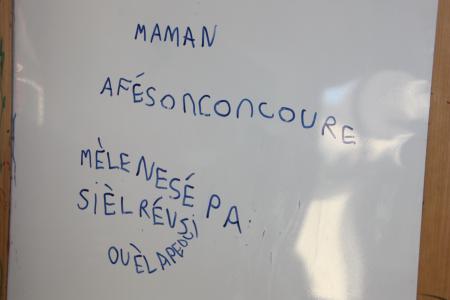 MAMAN
AFÉSONCONCOURE
MÈLENESÉ PA
SièLRÉUSi
OUÈLAPEDU